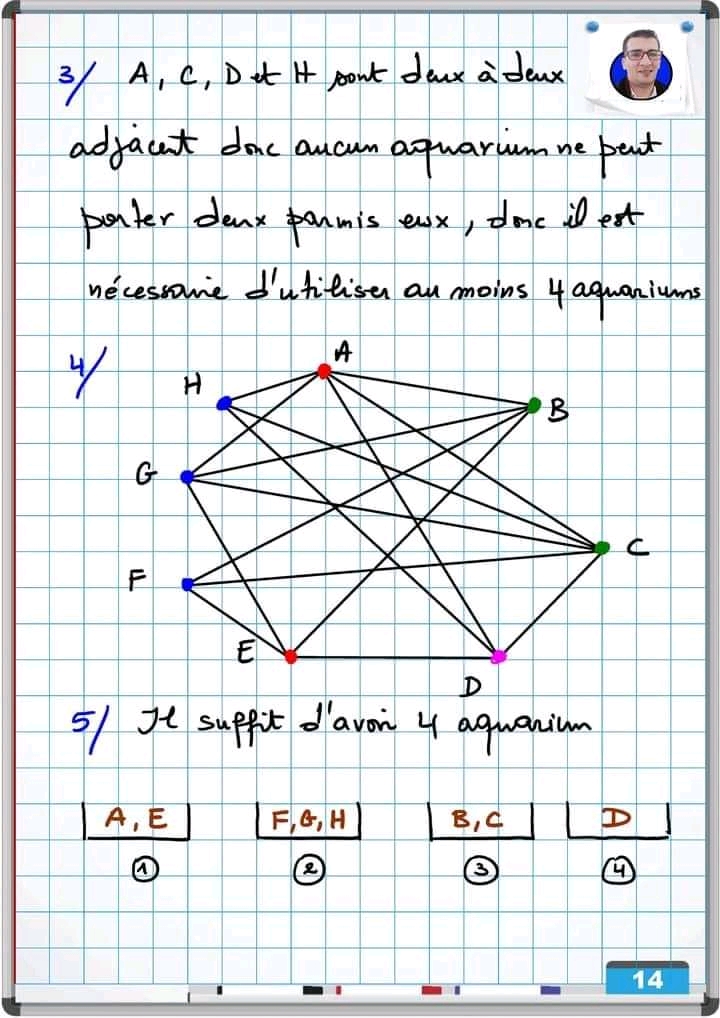 3/ A, C, D et H sont deux à deux
adjacent donc aucun aquarium ne peut
porter deux parmis eux, donc il est
nécessaire d'utiliser au moins 4 aquariums
4/
A
H
B
G
C
F
E
D
5/ Il suffit d'avoir 4 aquarium
A, E F, G, H B, C D
1 2 3 4
14